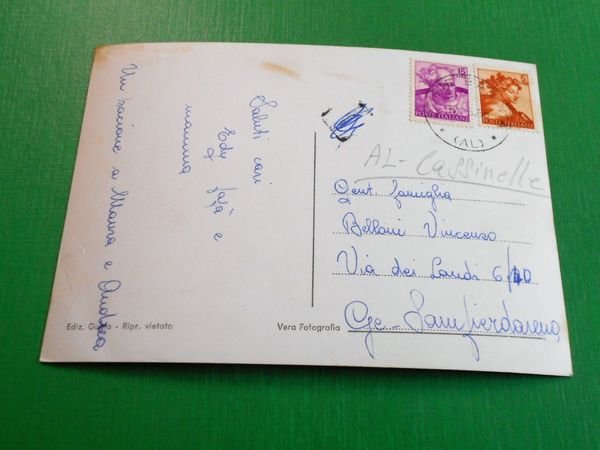 Un bacione a Maura e Andrea
Saluti cari
Edy papà e
mamma
Ediz. - Ripr. vietato
Vera Fotografia
15
POSTE ITALIANE
5
POSTE ITALIANE
* (AL) *
AL - Cassinelle
Gent. famiglia
Belloni Vincenzo
Via dei Landi 6/
Ge - Sampierdarena